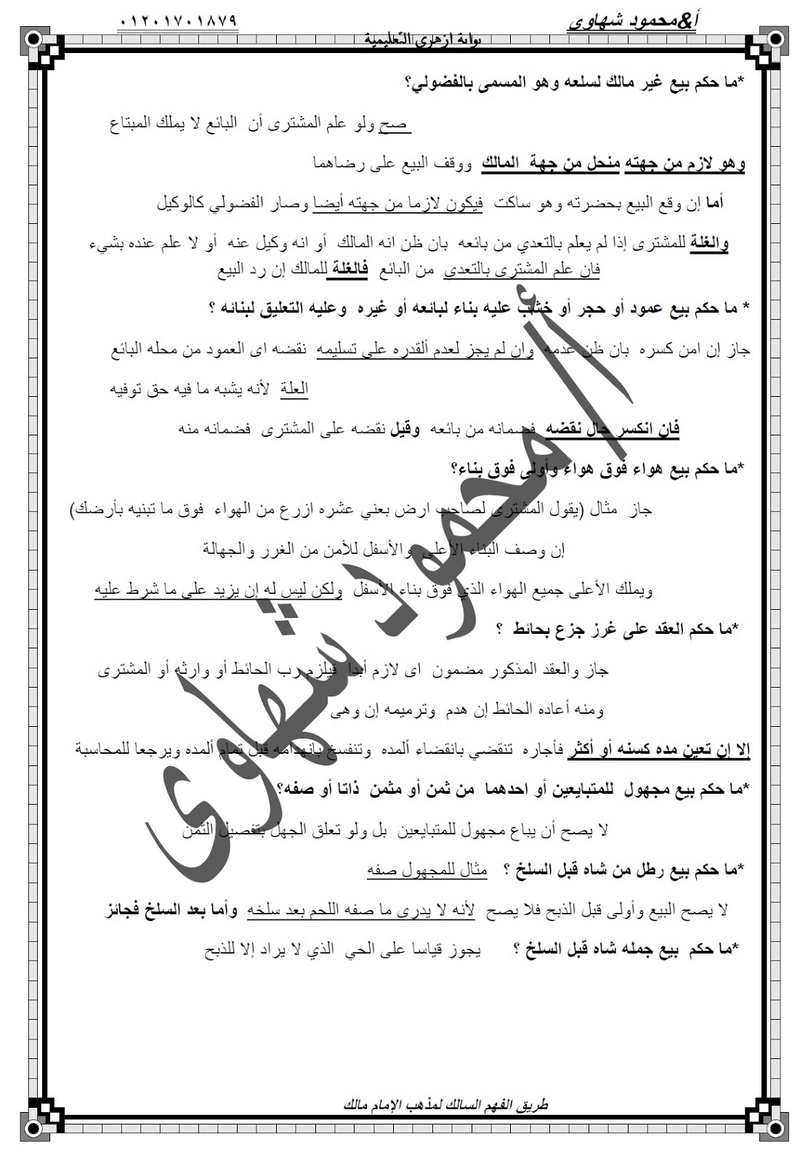 أ&محمود شهاوى ٠١٢٠١٧٠١٨٧٩
بوابة ازهرى التعليمية
*ما حكم بيع غير مالك لسلعه وهو المسمى بالفضولي؟
صح ولو علم المشترى أن البائع لا يملك المبتاع
وهو لازم من جهته منحل من جهة المالك ووقف البيع على رضاهما
أما إن وقع البيع بحضرته وهو ساكت فيكون لازما من جهته أيضا وصار الفضولي كالوكيل
والغلة للمشترى إذا لم يعلم بالتعدي من بائعه بان ظن انه المالك أو انه وكيل عنه أو لا علم عنده بشيء
فان علم المشترى بالتعدي من البائع فالغلة للمالك إن رد البيع
* ما حكم بيع عمود أو حجر أو خشب عليه بناء لبائعه أو غيره وعليه التعليق لبنائه ؟
جاز إن امن كسره بان ظن عدمه وان لم يجز لعدم ألقدره على تسليمه نقضه اى العمود من محله البائع
العلة لأنه يشبه ما فيه حق توفيه
فان انكسر حال نقضه فضمانه من بائعه وقيل نقضه على المشترى فضمانه منه
*ما حكم بيع هواء فوق هواء وأولى فوق بناء؟
جاز مثال (يقول المشترى لصاحب ارض بعني عشره ازرع من الهواء فوق ما تبنيه بأرضك)
إن وصف البناء الأعلى والأسفل للأمن من الغرر والجهالة
ويملك الأعلى جميع الهواء الذي فوق بناء الأسفل ولكن ليس له إن يزيد على ما شرط عليه
*ما حكم العقد على غرز جزع بحائط ؟
جاز والعقد المذكور مضمون اى لازم أبدا فيلزم رب الحائط أو وارثه أو المشترى
ومنه أعاده الحائط إن هدم وترميمه إن وهى
إلا إن تعين مده كسنه أو أكثر فأجاره تنقضي بانقضاء ألمده وتنفسخ بانهدامه قبل تمام ألمده ويرجعا للمحاسبة
*ما حكم بيع مجهول للمتبايعين أو احدهما من ثمن أو مثمن ذاتا أو صفه؟
لا يصح أن يباع مجهول للمتبايعين بل ولو تعلق الجهل بتفصيل الثمن
*ما حكم بيع رطل من شاه قبل السلخ ؟ مثال للمجهول صفه
لا يصح البيع وأولى قبل الذبح فلا يصح لأنه لا يدرى ما صفه اللحم بعد سلخه وأما بعد السلخ فجائز
*ما حكم بيع جمله شاه قبل السلخ ؟ يجوز قياسا على الحي الذي لا يراد إلا للذبح
أ/محمود شهاوى
طريق الفهم السالك لمذهب الإمام مالك